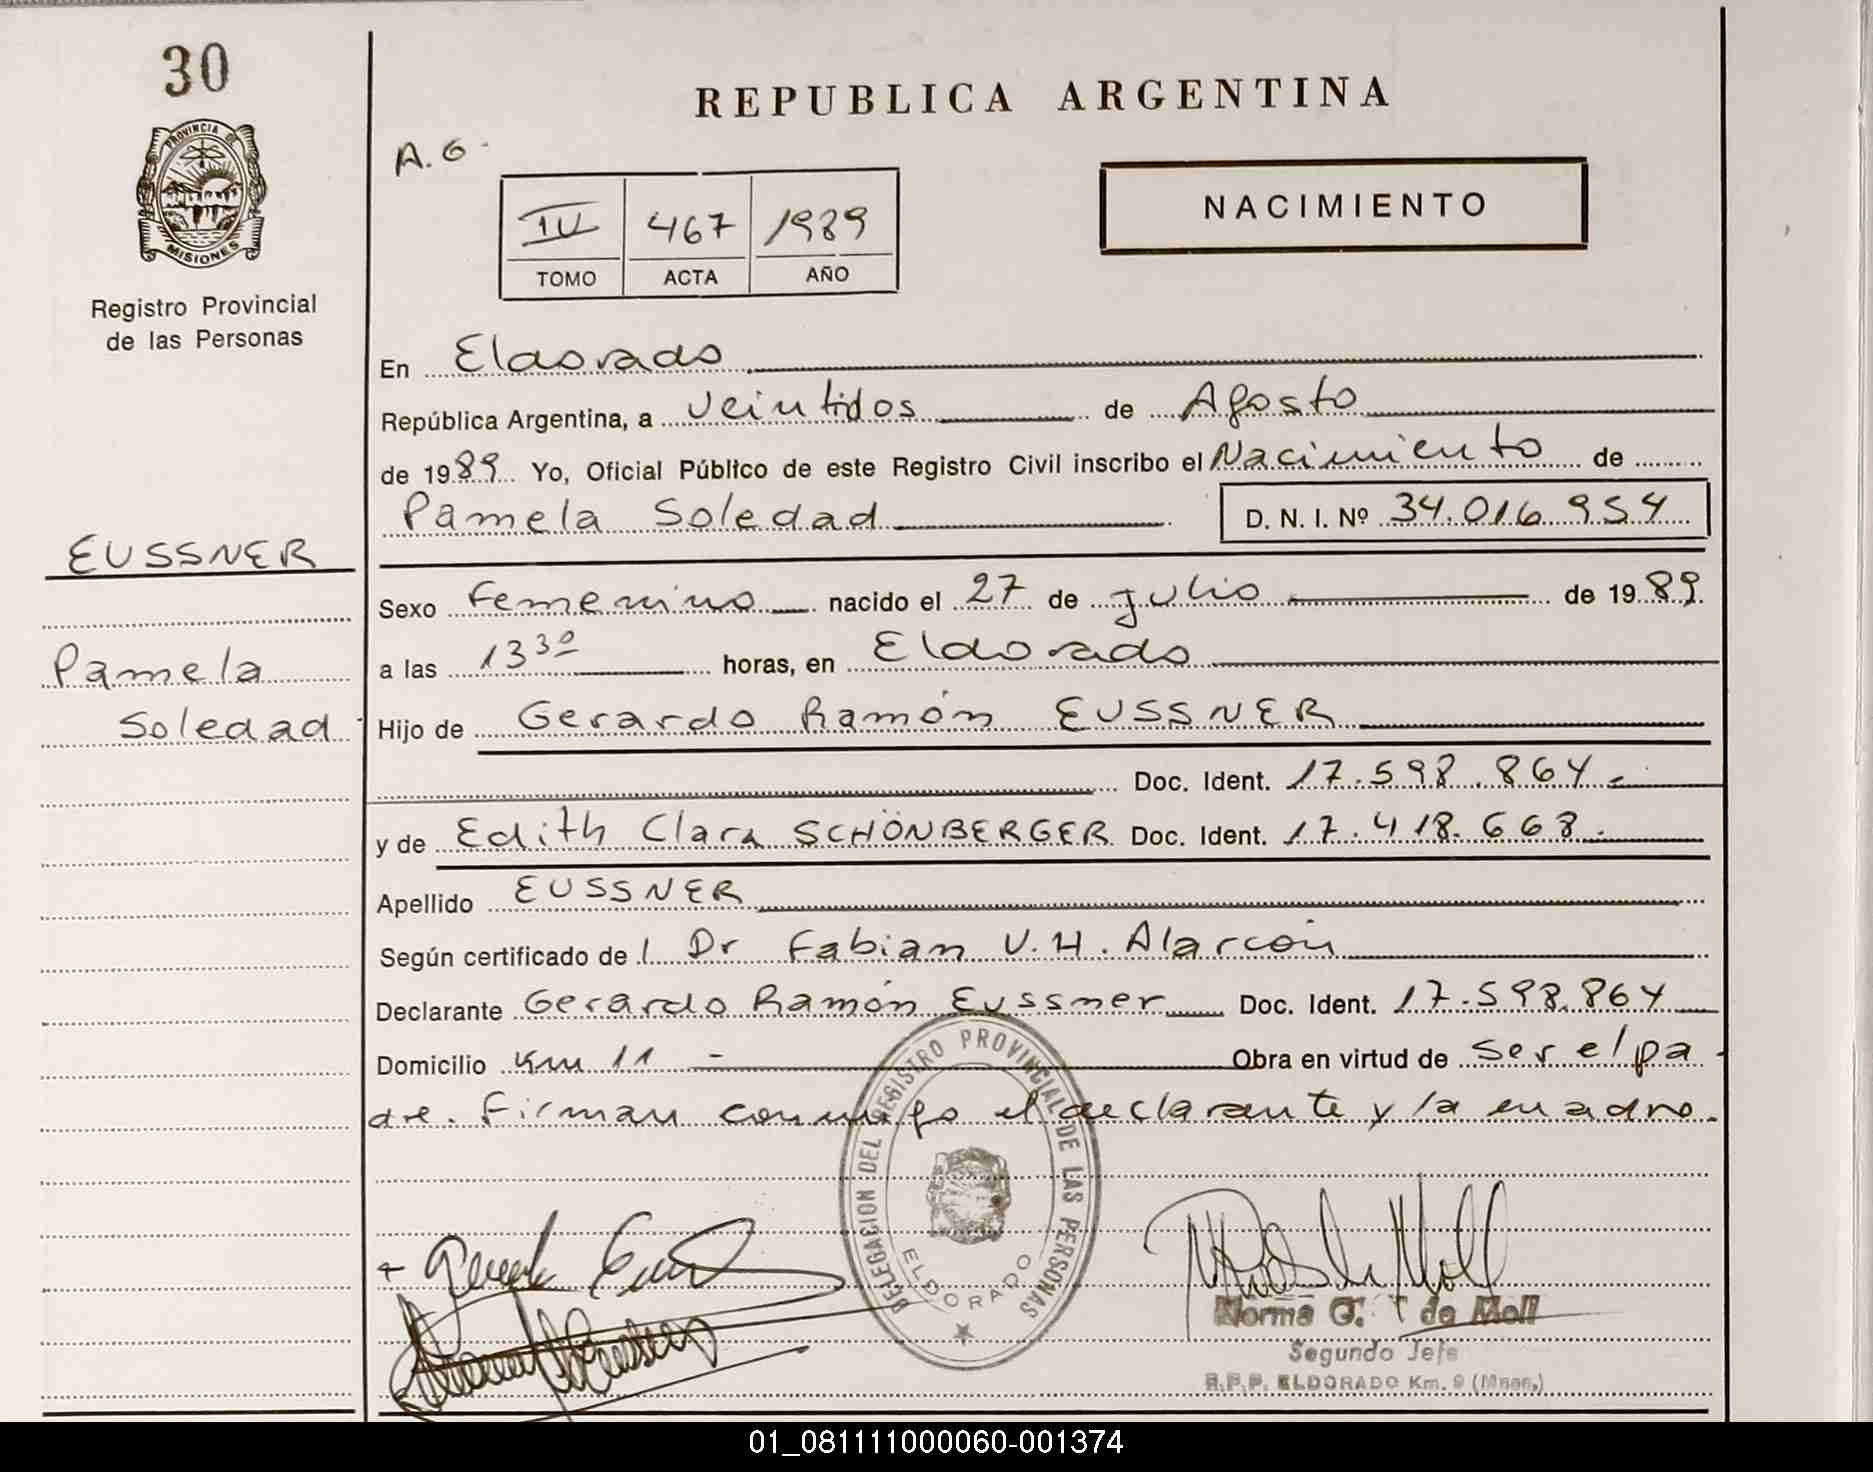 30
PROVINCIA DE
MISIONES
Registro Provincial
de las Personas
EUSSNER
Pamela
Soledad
REPUBLICA ARGENTINA
A.G.
NACIMIENTO
IV 467 1989
TOMO ACTA AÑO
En Eldorado
República Argentina, a veintidos de Agosto
de 1989 Yo, Oficial Público de este Registro Civil inscribo el Nacimiento de
Pamela Soledad D. N. I. Nº 34.016.954
Sexo Femenino nacido el 27 de julio de 1989
a las 13 30 horas, en Eldorado
Hijo de Gerardo Ramón EUSSNER
Doc. Ident. 17.598.864.-
y de Edith Clara SCHÖNBERGER Doc. Ident. 17.418.668.
Apellido EUSSNER
Según certificado del Dr Fabian V.H. Alarcón
Declarante Gerardo Ramón Eussner Doc. Ident. 17.598.864
Domicilio Km 11 - Obra en virtud de ser el pa
dre. Firman conmigo el declarante y la madre.
DELEGACION DEL REGISTRO PROVINCIAL DE LAS PERSONAS
ELDORADO
Norma G. T de Moll
Segundo Jefe
R.P.P. ELDORADO Km. 9 (Mnes.)
01_081111000060-001374